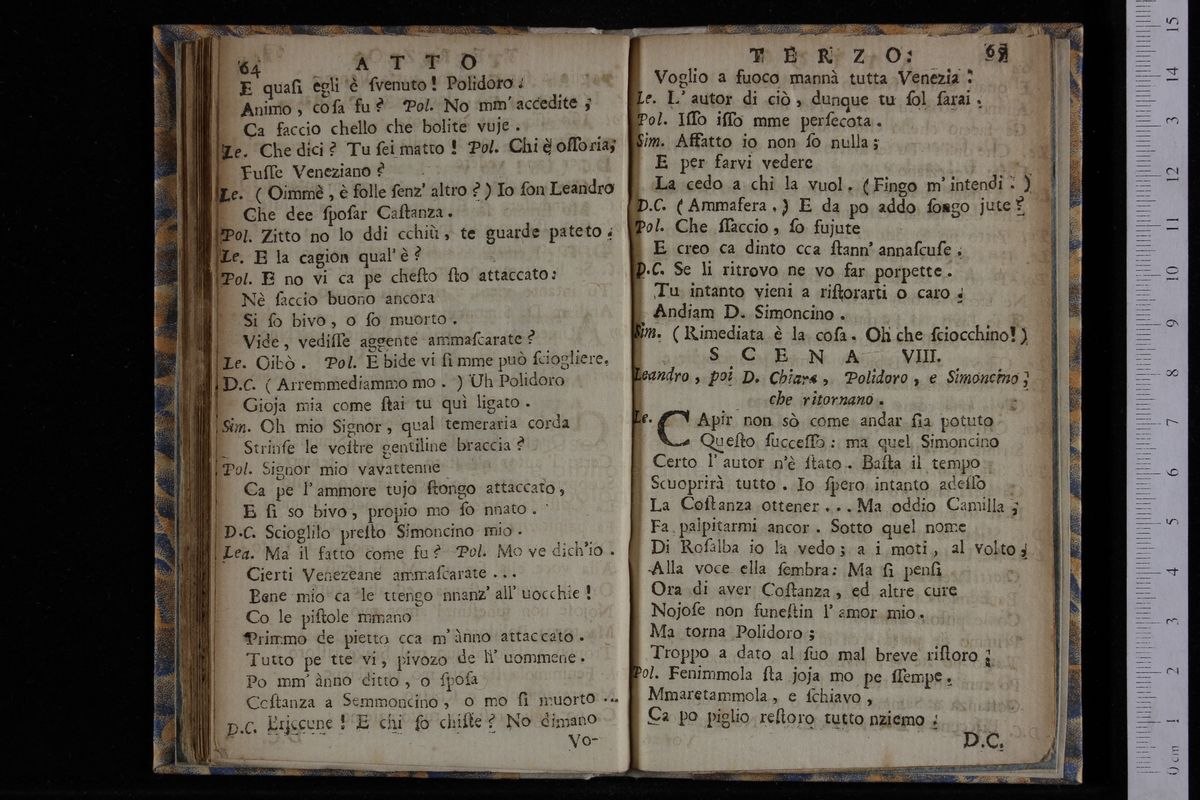 64 A T T O
E quaſi egli è ſvenuto! Polidoro.
Animo, coſa fu? Pol. No mm' accedite;
Ca faccio chello che bolite vuje.
Le. Che dici? Tu ſei matto! Pol. Chi è oſſoria,
Fuſſe Veneziano?
Le. (Oimmè, è folle ſenz' altro?) Io ſon Leandro
Che dee ſpoſar Caſtanza.
Pol. Zitto no lo ddi cchiù, te guarde pateto.
Le. E la cagion qual' è?
Pol. E no vi ca pe cheſto ſto attaccato:
Nè ſaccio buono ancora
Si ſo bivo, o ſo muorto.
Vide, vediſſe aggente ammaſcarate?
Le. Oibò. Pol. E bide vi ſi mme può ſciogliere.
D.C. (Arremmediammo mo.) Uh Polidoro
Gioja mia come ſtai tu quì ligato.
Sim. Oh mio Signor, qual temeraria corda
Strinſe le voſtre gentiline braccia?
Pol. Signor mio vavattenne
Ca pe l' ammore tujo ſtongo attaccato,
E ſi so bivo, propio mo ſo nnato.
D.C. Scioglilo preſto Simoncino mio.
Lea. Ma il fatto come fu? Pol. Mo ve dich'io.
Cierti Venezeane ammaſcarate...
Bene mio ca le ttengo nnanz' all' uocchie!
Co le piſtole mmano
Primmo de pietto cca m' ànno attaccato.
Tutto pe tte vi, pivozo de ll' uommene.
Po mm' ànno ditto, o ſpoſa
Coſtanza a Semmoncino, o mo ſi muorto...
D.C. Erjccune! E chi ſo chiſte? No dimano
Vo-
T E R Z O. 65
Voglio a fuoco mannà tutta Venezia.
Le. L' autor di ciò, dunque tu ſol ſarai.
Pol. Iſſo iſſo mme perſecota.
Sim. Affatto io non ſo nulla;
E per farvi vedere
La cedo a chi la vuol. (Fingo m' intendi.)
D.C. (Ammafera.) E da po addo ſongo jute?
Pol. Che ſſaccio, ſo fujute
E creo ca dinto cca ſtann' annaſcuſe.
D.C. Se li ritrovo ne vo far porpette.
Tu intanto vieni a riſtorarti o caro.
Andiam D. Simoncino.
Sim. (Rimediata è la coſa. Oh che ſciocchino!)
S C E N A VIII.
Leandro, poi D. Chiara, Polidoro, e Simoncino,
che ritornano.
Le. CApir non sò come andar ſia potuto
Queſto ſucceſſo: ma quel Simoncino
Certo l' autor n'è ſtato. Baſta il tempo
Scuoprirà tutto. Io ſpero intanto adeſſo
La Coſtanza ottener... Ma oddio Camilla,
Fa palpitarmi ancor. Sotto quel nome
Di Roſalba io la vedo; a i moti, al volto,
Alla voce ella ſembra: Ma ſi penſi
Ora di aver Coſtanza, ed altre cure
Nojoſe non funeſtin l' amor mio.
Ma torna Polidoro;
Troppo a dato al ſuo mal breve riſtoro.
Pol. Fenimmola ſta joja mo pe ſſempe.
Mmaretammola, e ſchiavo,
Ca po piglio reſtoro tutto nziemo.
D.C.